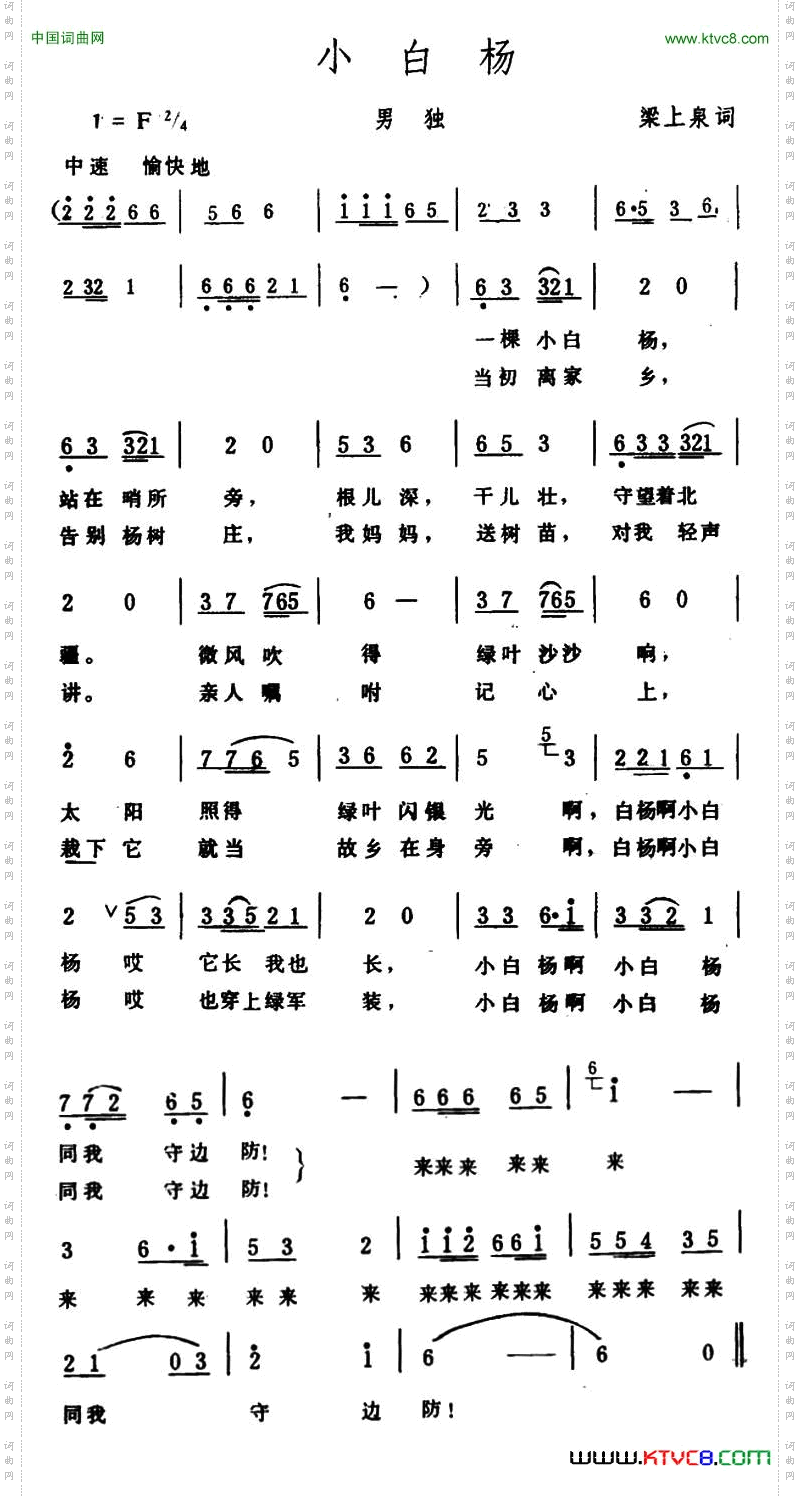 中国词曲网 www.ktvc8.com
小白杨
1=F 2/4 男独 梁上泉词
中速 愉快地
(2̇2̇2̇66 | 566 | i̇i̇i̇65 | 233 | 6·536 |
2321 | 6̣6̣6̣21 | 6̣ — ) | 6̣3 321 | 20
一棵小白 杨,
当初离家 乡,
6̣3 321 | 20 | 536 | 653 | 6̣33321
站在哨所 旁, 根儿深, 干儿壮, 守望着北
告别杨树 庄, 我妈妈, 送树苗, 对我轻声
20 | 37 765 | 6 — | 37 765 | 60
疆。 微风吹 得 绿叶沙沙 响,
讲。 亲人嘱 咐 记心 上,
2̇6 | 7765 | 36 62 | 5 53 | 2216̣1
太阳 照得 绿叶闪银 光 啊, 白杨啊小白
栽下它 就当 故乡在身 旁 啊, 白杨啊小白
2 ∨53 | 33521 | 20 | 33 6·i̇ | 3321
杨 哎 它长我也 长, 小白杨啊 小白 杨
杨 哎 也穿上绿军 装, 小白杨啊 小白 杨
7̣7̣2 6̣5̣ | 6̣ — | 666 65 | 6i̇ — |
同我 守边 防! 来来来 来来 来
同我 守边 防!
3 6·i̇ | 53 2 | i̇i̇2̇66i̇ | 554 35 |
来 来 来 来来 来 来来来来来来 来来来 来来
21 03 | 2̇ i̇ | 6 — | 6 0 ‖
同我 守 边 防!
www.KTVC8.COM
词曲网